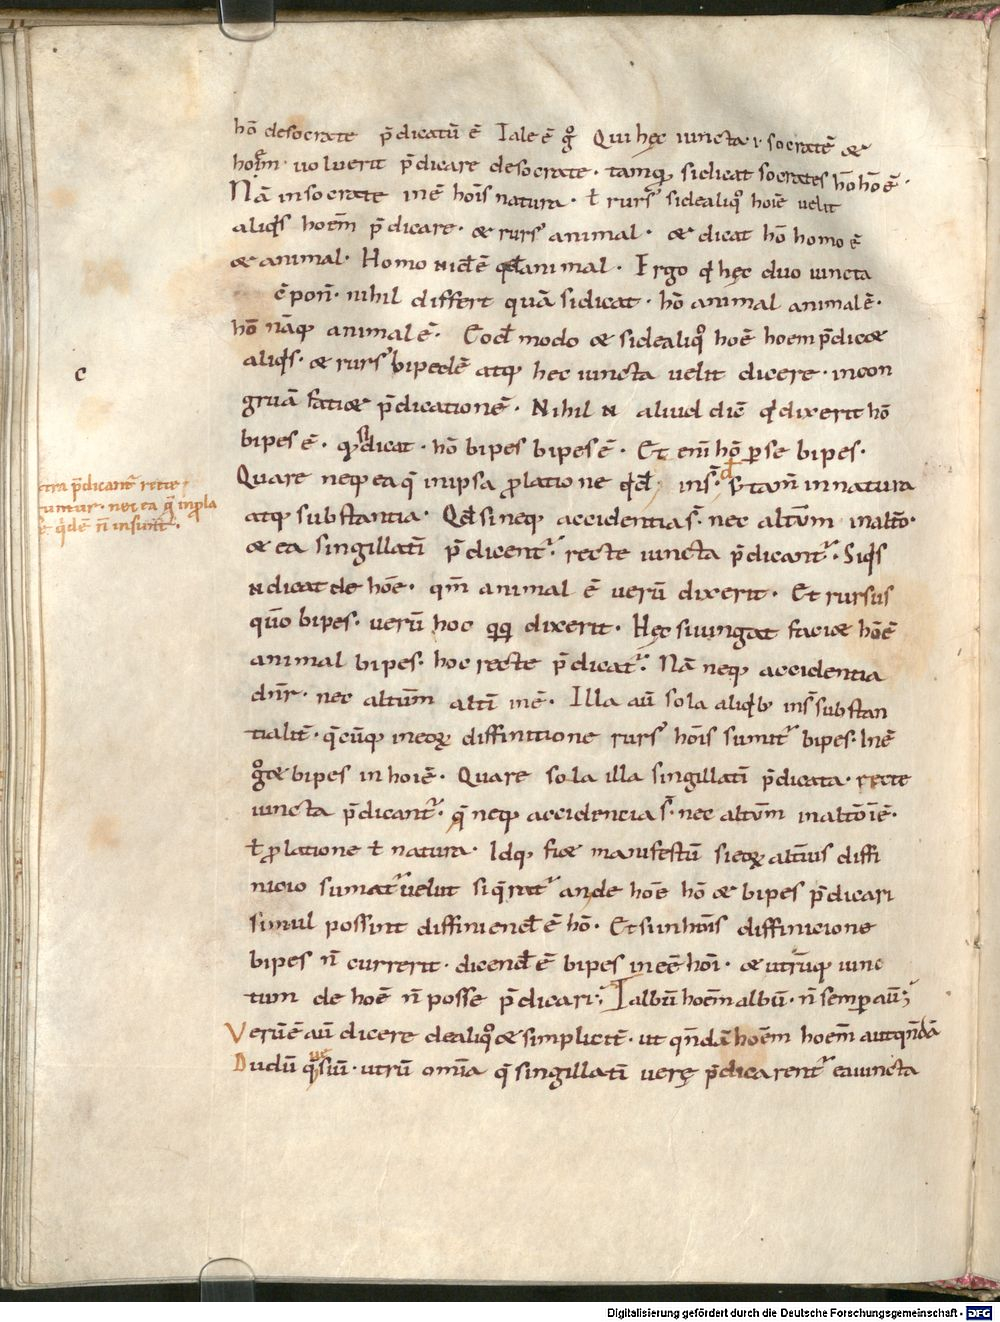 hō desocrate p̄dicatū ē Tale ē gͦ Qui hęc iuncta · i · socratē &
hoīem · uoluerit p̄dicare desocrate · tamq; sidicat socrates hō hō ē ·
Nā insocrate inē hoīs natura · ł rurs' sidealiqͦ hoīe uelit
aliq̄s hoēm p̄dicare · & rurs' animal · & dicat hō homo ē
& animal · Homo n̄ idē ē qđ animal · Ergo qđ hęc duo iuncta
nihil differt quā sidicat · hō animal animal ē ·
hō nāq; animal ē · Eodē modo & sidealiqͦ hoē hoem p̄dic&
aliq̄s · & rurs' bipedē atq; hec iuncta uelit dicere · incon
gruā faci& p̄dicationē · Nihil n̄ aliud diē qđ dixerit hō
bipes ē · q̄ sidicat · hō bipes bipes ē · Et eni hō perse bipes ·
Quare neq; ea q̄ inipsa platione qđ ins̄ · tam̄ innatura
atq; substantia · Qđ sineq; accidentia s̄ · nec altm̄ inaltō ·
& ea singillatī p̄dicent' · recte iuncta p̄dicant' · Siq̄s
n̄ dicat de hōe · qm̄ animal ē uerū dixerit · Et rursus
qm̄o bipes · uerū hoc qq̄ dixerit · Hęc siiungat faci& hōē
animal bipes · hoc recte p̄dicat' · Nā neq; accidentia
dn̄r · nec altm̄ altī inē · Illa aū sola aliqb' ins̄ substan
tialit̄ · q̄cūq; ineoꝝ diffinitione rurs' hoīs sumit' bipes · Inē
gͦ & bipes in hoīē · Quare sola illa singillatī p̄dicata · recte
iuncta p̄dicant' · q̄ neq; accidencia s̄ · nec altm̄ inaltō īē ·
ł platione ł natura · Idq; fi& manifestū sieoꝝ altīus diffi
nicio sumat' uelut si q̄rat' an de hoē hō & bipes p̄dicari
simul possint diffiniendū ē hō · Et sinhoīs diffinicione
bipes n̄ currerit · dicendū ē bipes ineē hoīi · & utrūq; iunc
tum de hoē n̄ posse p̄dicari ; I albū hoēm albū · n̄ semp aū ;
Verū ē aū dicere dealiqͦ & simplicit̄ · ut qn̄dā hoēm hoēm aut qn̄dā
Dudū q̄siuī · utrū om̄ia q̄ singillatī uerę p̄dicarent' eaiuncta
c
p̄dicant' recte ·
nec ea q̄ inpla
q̄dē n̄ insunt ·
Digitalisierung gefördert durch die Deutsche Forschungsgemeinschaft - DFG